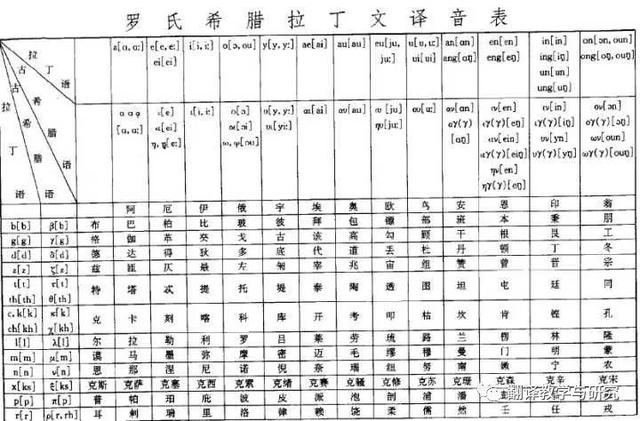 罗氏希腊拉丁文译音表
拉丁语
古希腊语
古拉丁语
a[ɑ, ɑ:] e[e, e:] i[i, i:] o[ɔ, ou] y[y, y:] ae[ai] au[au] eu[ju, u[u, u:] an[ɑn] en[en] in[in] on[ɔn, oun]
ei[ei] ju:] ui[ui] ang[ɑŋ] eng[eŋ] ing[iŋ] ong[ɔŋ, ouŋ]
un[un]
ung[uŋ]
α ᾳ ε[e] ι[i, i:] ο[ɔ] υ[y, y:] αι[ai] αυ[au] ευ[ju] ου[u:] αν[ɑn] εν[en] ιν[in] ον[ɔn]
[ɑ, ɑ:] ει[ei] οι[ɔi] υι[yi:] ηυ[ju:] αγ(γ) εγ(γ)[eŋ] ιγ(γ)[iŋ] ογ(γ)[ɔŋ]
η, ῃ[e:] ω, ῳ[ou] [ɑŋ] ειν[ein] υν[yn] ων[oun]
ειγ(γ)[eiŋ] υγ(γ)[yŋ] ωγ(γ)[ouŋ]
ην[en]
ηγ(γ)[eŋ]
阿 厄 伊 俄 宇 埃 奥 欧 乌 安 恩 印 翁
b[b] β[b] 布 巴 柏 比 玻 彼 拜 包 部 班 本 秉 朋
g[g] γ[g] 格 伽 革 癸 戈 古 该 高 勾 顾 干 根 艮 工
d[d] δ[d] 德 达 得 狄 多 底 代 道 丢 杜 丹 顿 丁 冬
z[z] ζ[z] 兹 匝 仄 最 左 宰 兆 宙 组 赞 曾 晋 宗
t[t] τ[t] 特 塔 忒 提 托 堤 泰 陶 透 图 坦 屯 廷 同
th[th] θ[th]
c, k[k] κ[k] 克 卡 刻 喀 科 库 开 考 叩 枯 坎 肯 铿 孔
ch[kh] χ[kh]
l[l] λ[l] 尔 拉 勒 利 罗 吕 莱 劳 琉 路 兰 楞 林 隆
m[m] μ[m] 谟 马 墨 弥 摩 密 迈 毛 缪 穆 曼 门 明 蒙
n[n] ν[n] 恩 那 涅 尼 诺 倪 奈 瑙 纽 努 南 嫩 宁 农
x[ks] ξ[ks] 克斯 克萨 克塞 克西 克索 克绪 克赛 克骚 克修 克苏 克珊 克森 克辛 克宋
p[p] π[p] 普 帕 珀 庇 波 皮 派 泡 剖 浦 潘
r[r] ρ[r, rh] 耳 剌 瑞 里 洛 律 赖 饶 柔 儒 然 壬 任 戎
翻译教学与研究